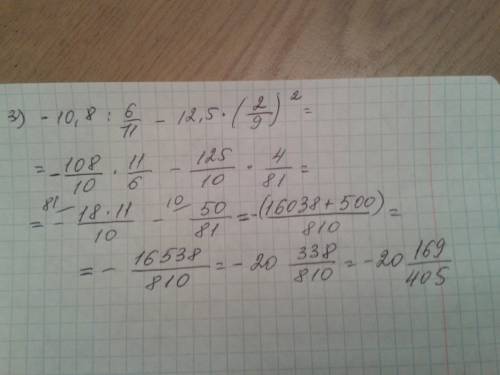 3) - 10,8 : 6/11 - 12,5 · (2/9)² =
= - 108/10 · 11/6 - 125/10 · 4/81 =
= 81/ - 18·11/10 - 10/ 50/81 = -(16038+500)/810 =
= - 16538/810 = - 20 338/810 = - 20 169/405